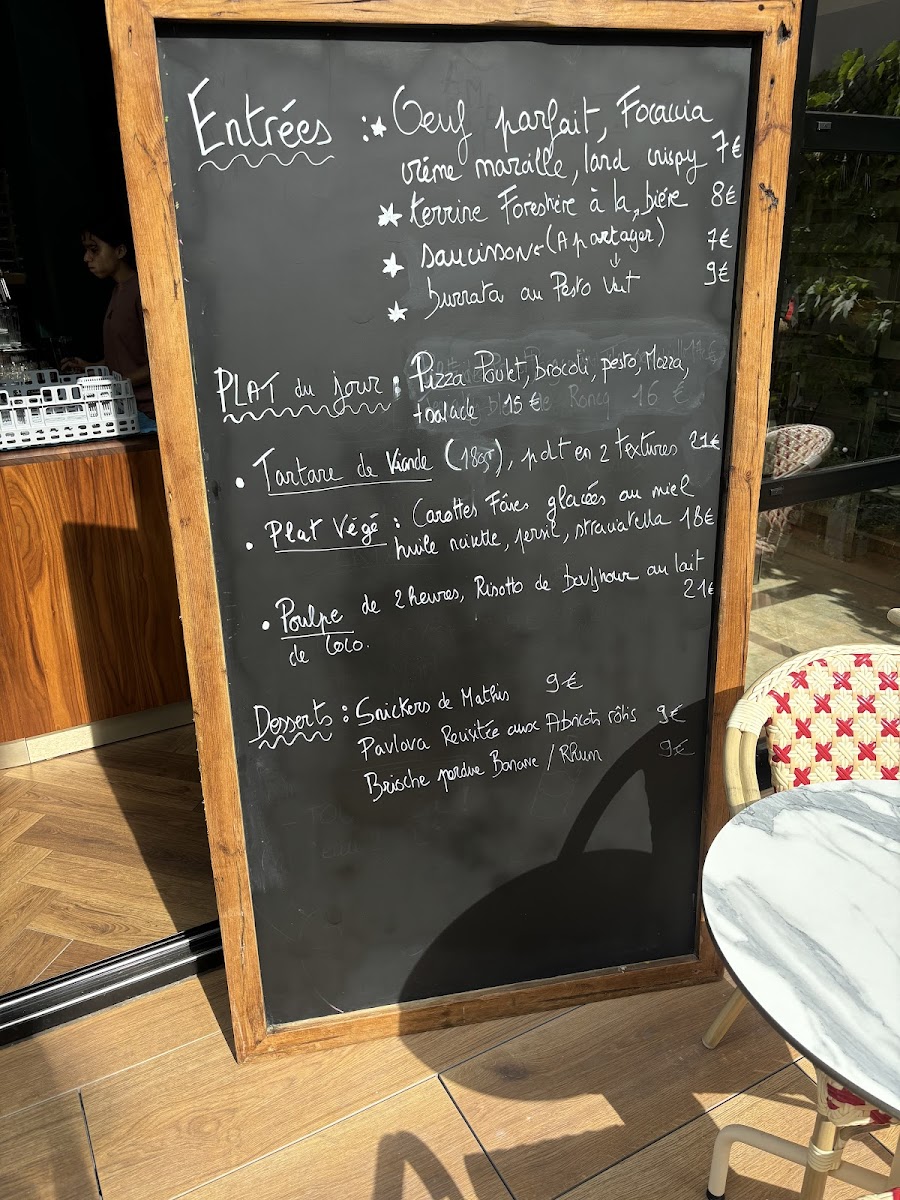 Entrées : Oeuf parfait, Focaccia
crème maroille, lard crispy 7€
terrine Forestière à la bière 8€
saucisson (A partager) 7€
burrata au Pesto Vert 9€
PLAT du jour : Pizza Poulet, brocoli, pesto, Mozza,
salade 15 €
Tartare de Viande (180gr), potit en 2 Textures 21€
Plat Végé : Carottes Fânes glacées au miel
huile noisette, persil, stracciatella 18€
Poulpe de 2 heures, Risotto de boulghour au lait
de coco. 21€
Desserts : Snickers de Mathis 9€
Pavlova Revisitée aux Abricots rôtis 9€
Brioche perdue Banane / RHum 9€